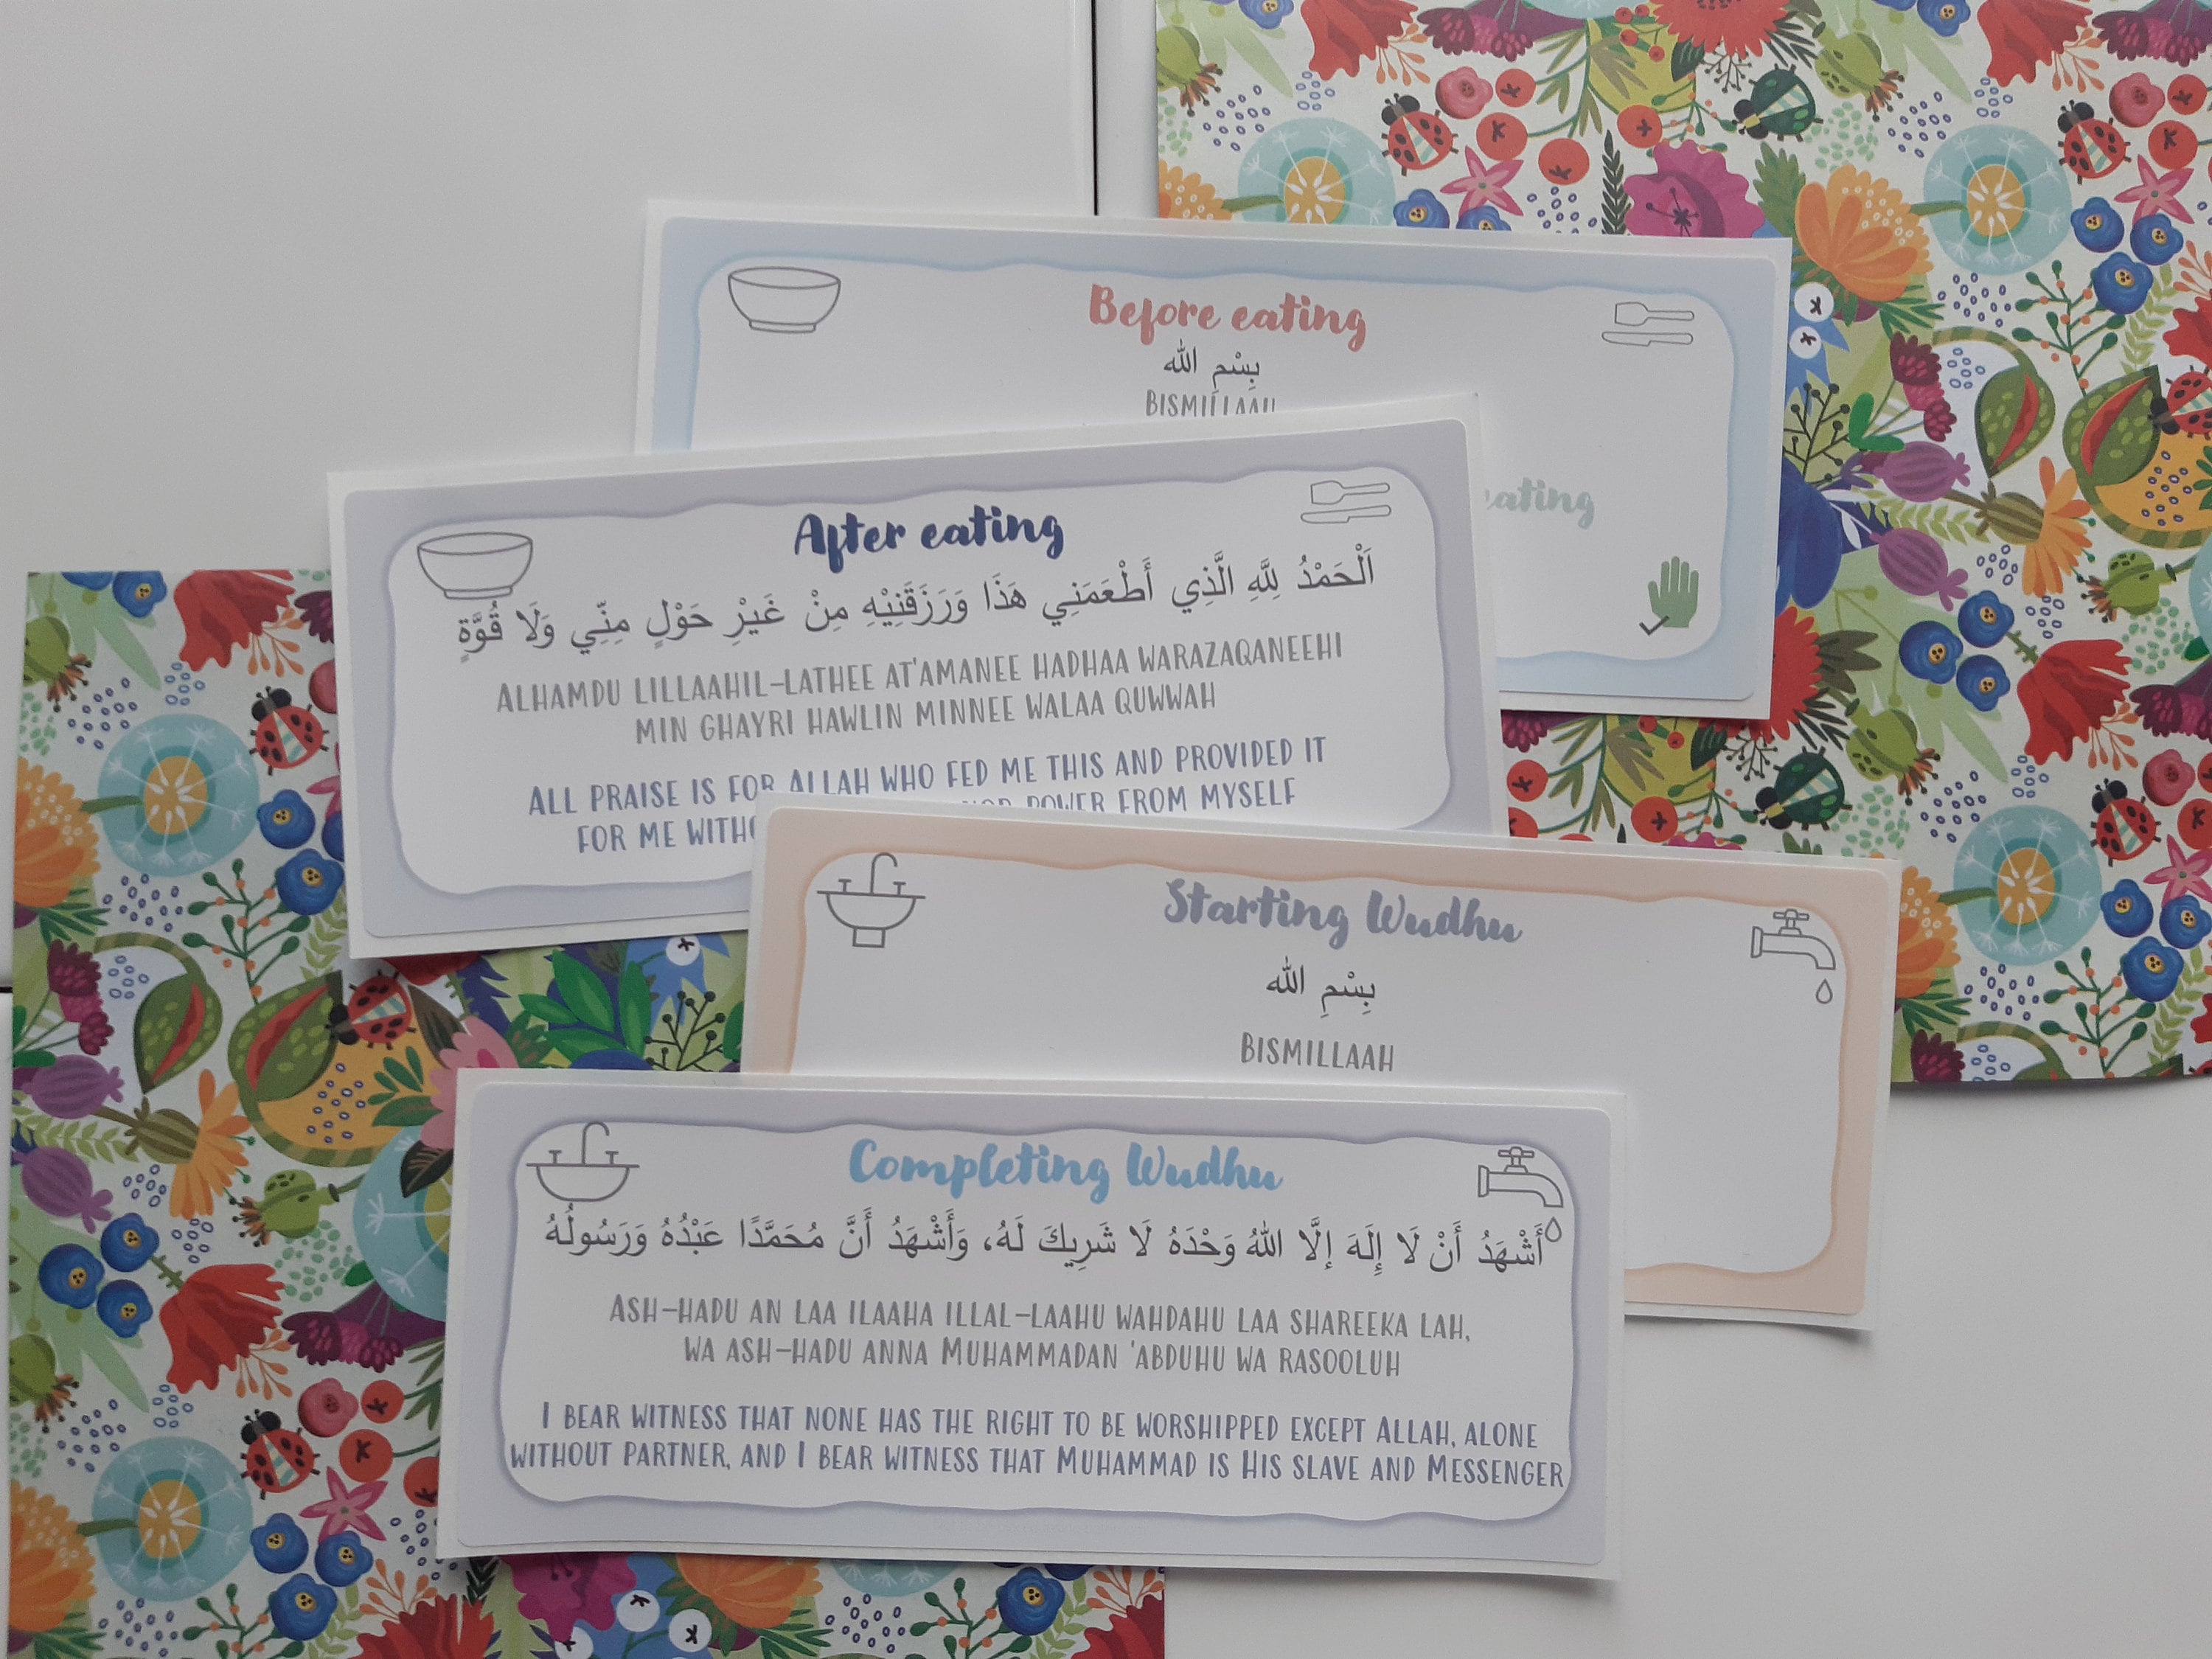 Before eating
بِسْمِ الله
BISMILLAAH
eating
After eating
اَلْحَمْدُ لِلَّهِ الَّذِي أَطْعَمَنِي هَذَا وَرَزَقَنِيْهِ مِنْ غَيْرِ حَوْلٍ مِنِّي وَلَا قُوَّةٍ
ALHAMDU LILLAAHIL-LATHEE AT'AMANEE HADHAA WARAZAQANEEHI
MIN GHAYRI HAWLIN MINNEE WALAA QUWWAH
ALL PRAISE IS FOR ALLAH WHO FED ME THIS AND PROVIDED IT
FOR ME NOR POWER FROM MYSELF
Starting Wudhu
بِسْمِ الله
BISMILLAAH
Completing Wudhu
أَشْهَدُ أَنْ لَا إِلَهَ إلَّا اللهُ وَحْدَهُ لَا شَرِيكَ لَهُ، وَأَشْهَدُ أَنَّ مُحَمَّدًا عَبْدُهُ وَرَسُولُهُ
ASH-HADU AN LAA ILAAHA ILLAL-LAAHU WAHDAHU LAA SHAREEKA LAH,
WA ASH-HADU ANNA MUHAMMADAN 'ABDUHU WA RASOOLUH
I BEAR WITNESS THAT NONE HAS THE RIGHT TO BE WORSHIPPED EXCEPT ALLAH, ALONE
WITHOUT PARTNER, AND I BEAR WITNESS THAT MUHAMMAD IS HIS SLAVE AND MESSENGER